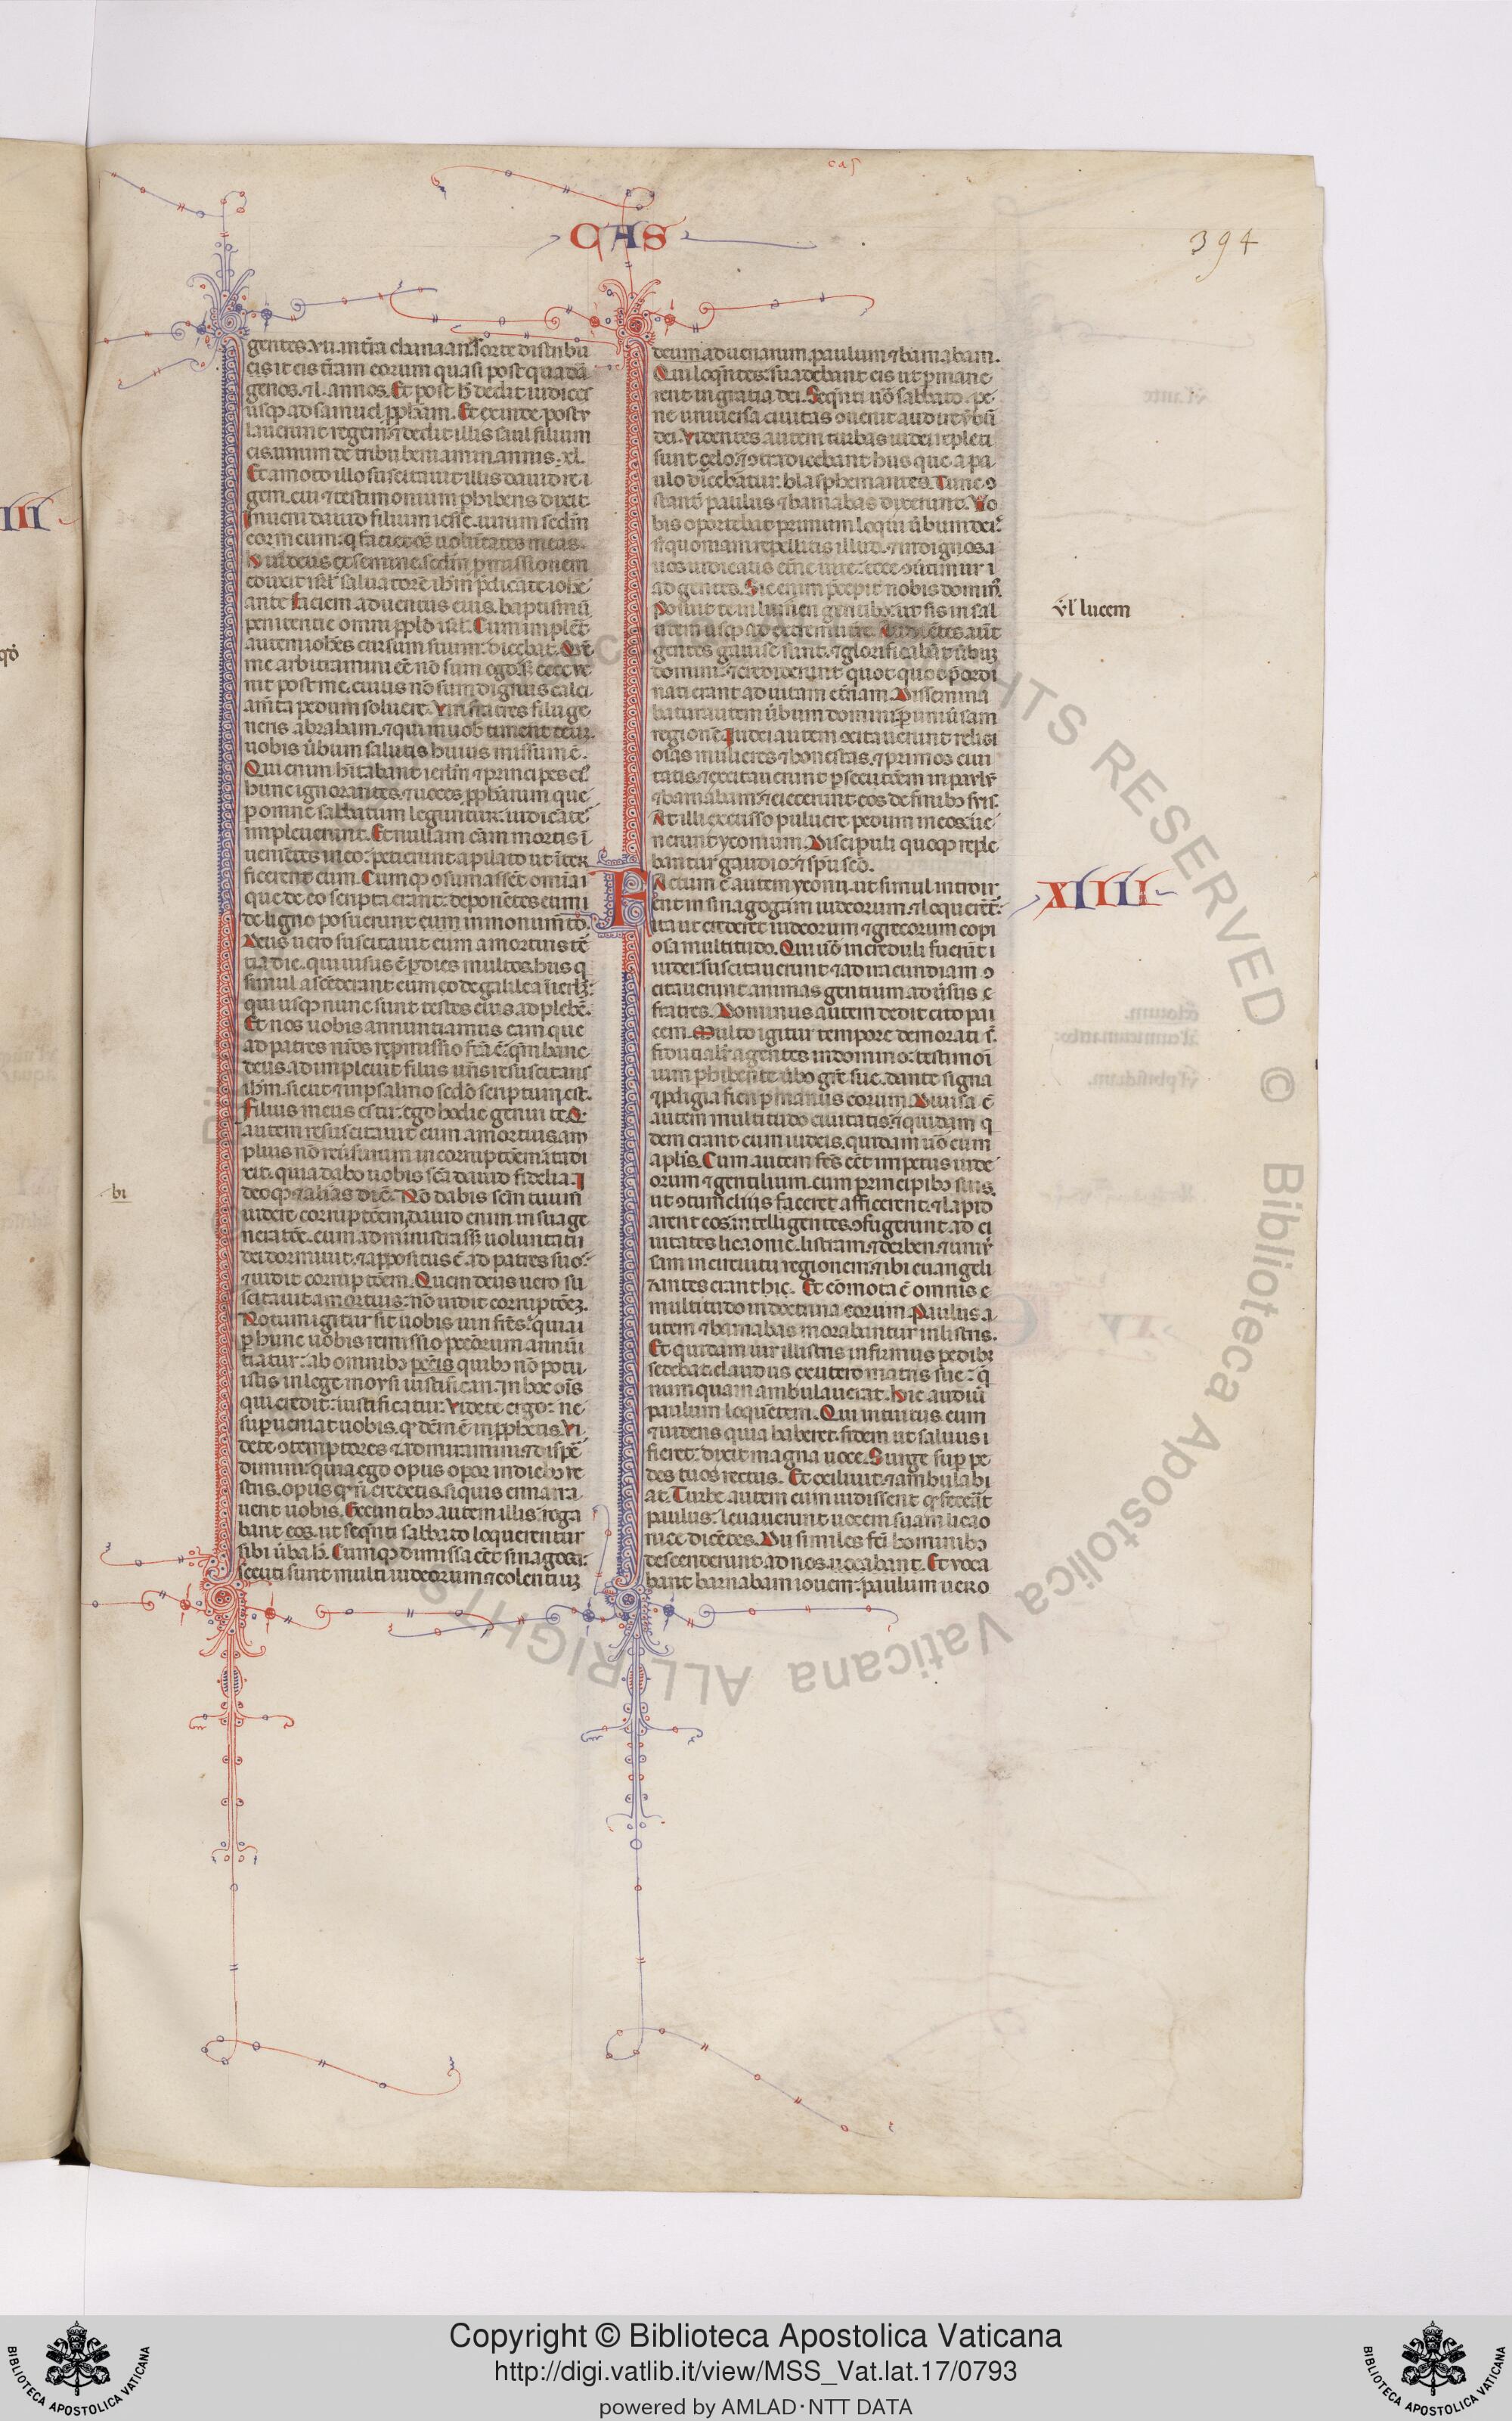 caſ
CAS
394
gentes.vii.int̄ia chanaan. sorte distribu
eis it eis t̄iam eorum quasi post quadā
genos.⁊ l. annos. Et post h̄ dedit iudices
usq; ad samuel p̱ph̄am. Et exinde postv
lauerunt regem:⁊ dedit illis saul filium
cis.uirum de tribu beniamin.annis.xl.
Et amoto illo suscitauit illis dauid re i
gem.cui ⁊ testimonium p̱hibens dixit.
Inueni dauid filium iesse.uirum sed̄m
cor meum: q̄ faciet oēs uolūtates meas.
Huiꝰ deus ex semine sed̄m p̱missionem
eduxit isrl̄ saluatorē ih̄m p̄dicāte iohē
ante faciem aduentus eius. baptismū
penitentie omni pp̱lo isrl̄. Cum implēt̄
autem ioh̄es cursum suum: dicebat. Quē
me arbitramini eē nō sum ego.s; ecce ve
nit post me.cuius nō sum dignus calci
amta pedum soluere. Viri fratres filii ge
neris abraham.⁊ qui in uob̄ timent deuz.
uobis ūbum salutis huius missum ē.
Qui enim h̄itabant ierl̄m ⁊ principes eiꝰ
hunc ignorantes.⁊ uoces p̱ph̄arum que
p̱ omne sabbatum leguntur: iudicātes
impleuerunt. Et nullam cām mortis ī
ueniētes in eo: petierunt a pilato ut īter
ficerent eum. Cumq; ↄsumassēt om̄ia i
que de eo scripta erant: deponētes eum i
de ligno posuerunt eum in monum̄to.
Deus uero suscitauit eum a mortuis tē
tia die. qui uisus ē p̱ dies multos. hus q̄
simul ascēderant cum eo de galilea ī ierl̄z:
qui usq; nunc sunt testes eius ad plebē.
Et nos uobis annuntiamus eam que
ad patres nr̄os rep̱missio fc̄a ē: qm̄ hanc
deus adimpleuit filiis uris resuscitans
ih̄m. sicut ⁊ in psalmo sc̄do scriptum est.
Filius meus es tu: ego hodie genui te. Q
autem resuscitauit eum a mortuis. am
plius nō reūsurum in corruptōem: ita di
xit. quia dabo uobis sc̄a dauid fidelia. I
deoq; ⁊ alias dic̄. Nō dabis sc̄m tuum
uidere corruptōem. dauid enim in sua ge
neratōe. cum administrass̄ uoluntati
dei dormiuit.⁊ appositus ē ad patres suoꝰ
⁊ uidit corruptōem. Quem deus uero su
scitauit a mortuis: nō uidit corruptōez.
Notum igitur sit uobis uiri fr̄es: quia i
p̱ hunc uobis remissio pec̄orum annūi
tiatur: ab omnibꝰ pec̄is quibꝰ nō potu
istis in lege moysi iustifican. In hoc oīs
qui credit: iustificatur. Videte ergo: ne
suꝑueniat uobis. qd̄ dc̄m ē in p̱phetis. Vi
dete ↄtemptores ⁊ admiramini ⁊ dispē
dimini: quia ego opus opor in diebꝰ ve
stris. opus qd̄ n̄ credetis. si quis enarra
uerit uobis. Exeuntibꝰ autem illis: roga
bant eos. ut seq̄nti sabbato loquerentur
sibi ūba h̄. Cumq; dimissa eēt sinagoga:
secuti sunt multi iudeorum ⁊ colentiuz
deum aduenarum. paulum ⁊ barnabam.
Qui loq̄ntes: suadebant eis ut p̱mane
rent in gratia dei. Seq̄nti uō sabbato. pe
ne uniuersa ciuitas ↄuenit audire ūbū
dei. Videntes autem turbas iudei repleti
sunt çelo:⁊ ↄtradicebant hus que a pa
ulo dicebātur: blasphemantes. Tunc ↄ
stant̄ paulus ⁊ barnabas dixerunt. Vo
bis oportebat primum loqui ūbum dei:
sꝫ quoniam repellitis illud.⁊ indignos a
uos iudicatis et̄ne uite: ecce ↄuertimur i
ad gentes. Sic enim p̄cepit nobis dominꝰ
Posui te in lumen gentibꝰ: ut sis in sal
utem usq; ad extremū t̄re. Audiētes aūt
gentes gauise sunt.⁊ glorificabāt ūbuz
domini:⁊ crediderunt quot quot p̄ordi
nati erant ad uitam et̄nam. Dissemina
batur autem ūbum domini: p̱ uniūsam
regionē. Iudei autem ↄcitauerunt religi
osas mulieres ⁊ honestas.⁊ primos ciui
tatis.⁊ excitauerunt p̱secutōem in paulū
⁊ barnabam:⁊ eiecerunt eos de finibꝰ suis.
At illi excusso puluere pedum in eos: ue
nerunt yconium. Discipuli quoq; reple
bantur gaudio:⁊ spū sc̄o.
FActum ē autem yconii. ut simul introir
ent in sinagogam iudeorum.⁊ loquerēt̄:
ita ut crederet iudeorum ⁊ grecorum copi
osa multitudo. Qui uō increduli fuerūt i
iudei: suscitauerunt.⁊ ad iracundiam ↄ
citauerunt animas gentium aduersus e
fratres. Dominus autem dedit cito pa i
cem. Multo igitur tempore demorati s̄.
fiducialit̄ agentes in domino: testimoi
nium p̱hibente ūbo gr̄e sue. dante signa
⁊ p̱digia fieri p̱ manus eorum. Diuisa ē
autem multitudo ciuitatis:⁊ quidam q̄
dem erant cum iudeis. quidam uō cum
apl̄is. Cum autem fc̄s eēt impetus iude
orum ⁊ gentilium. cum principibꝰ suis.
ut ↄtumeliis facerēt afficerent.⁊ lapid
arent eos: intelligentes. ↄfugerunt ad ci
uitates licaonie. listram.⁊ derben.⁊ uniū
sam in circuitu regionem:⁊ ibi euangeli
zantes erant hic. Et cōmota ē omnis e
multitudo in doctrina eorum. Paulus a
utem ⁊ barnabas morabantur in listris.
Et quidam uir illistris infirmus pedibꝫ
sedebat: claudus ex utero matris sue: q̄
numquam ambulauerat. Hic audiuī
paulum loquētem. Qui intuitus eum
⁊ uidens quia haberet. fidem ut saluus i
fieret: dixit magna uoce. Surge sup̱ pe
des tuos rectus. Et exiliuit:⁊ ambulabi
at. Turbe autem cum uidissent qd̄ fecerāt
paulus: leuauerunt uocem suam licao
nice dicētes. Dii similes fc̄i hominibꝰ
descenderunt ad nos. uocabant. Et voca
bant barnabam iouem: paulum uero
ul̄ lucem
XIIII
bi
III
qō
Copyright © Biblioteca Apostolica Vaticana ALL RIGHTS RESERVED
Copyright © Biblioteca Apostolica Vaticana
http://digi.vatlib.it/view/MSS_Vat.lat.17/0793
powered by AMLAD・NTT DATA
BIBLIOTECA APOSTOLICA VATICANA
BIBLIOTECA APOSTOLICA VATICANA